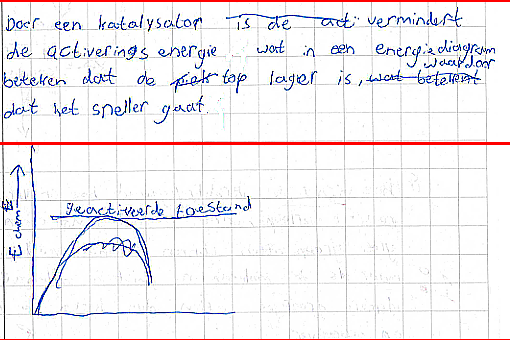 Door een katalysator is de act. vermindert
de activerings energie wat in een energiediagram
beteken dat de piek top lager is, waardoor wat betekent
dat het sneller gaat.
geactiveerde toestand
E chem